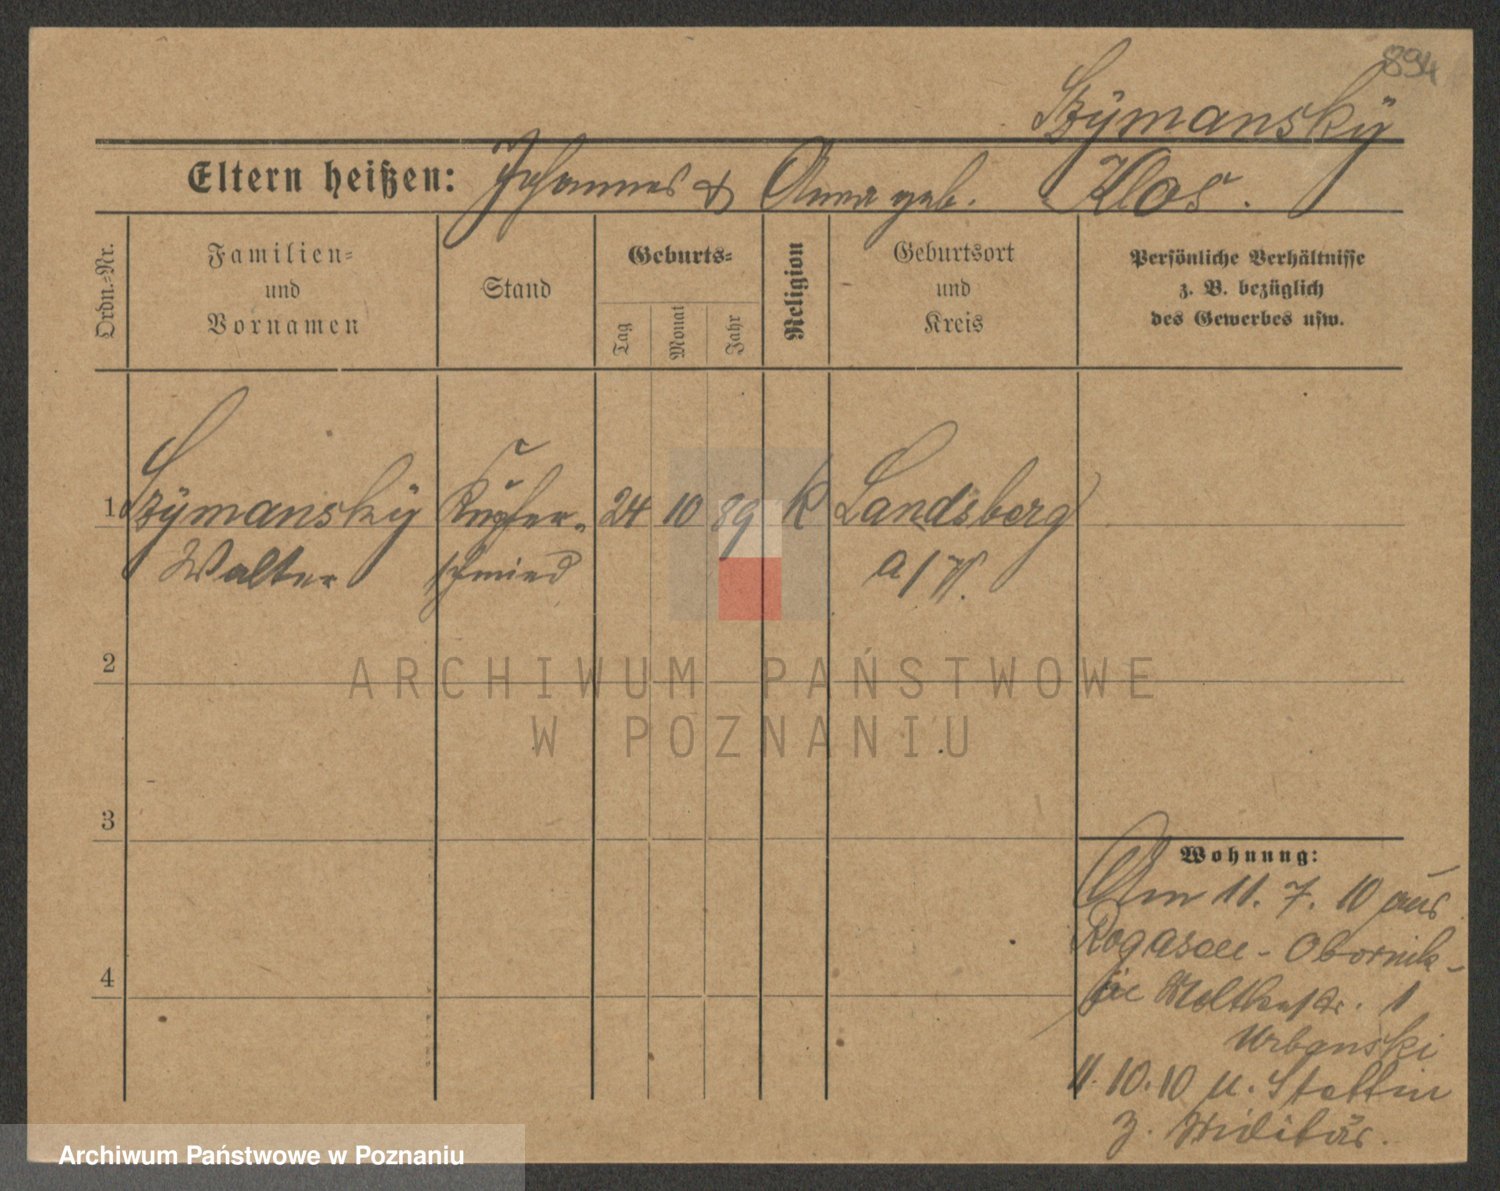 894
Szÿmanskÿ
Eltern heißen: Johannes & Anna geb. Klos.
Ordn.-Nr.
Familien-
und
Vornamen
Stand
Geburts-
Tag
Monat
Jahr
Religion
Geburtsort
und
Kreis
Persönliche Verhältnisse
z. B. bezüglich
des Gewerbes usw.
1 Szÿmanskÿ Kupfer- 24 10 89 k Landsberg
Walter schmied a/W.
2
3
4
Wohnung:
Am 11. 7. 10 aus
Rogasen - Obornik -
Moltkestr. 1
Urbanski
11. 10. 10 n. Stettin
z. Militär.
ARCHIWUM PAŃSTWOWE
W POZNANIU
Archiwum Państwowe w Poznaniu